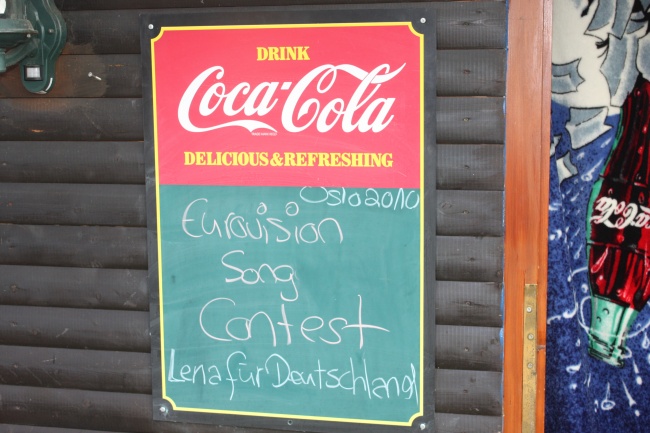 DRINK
Coca-Cola
DELICIOUS&REFRESHING
Oslo 2010
Eurovision
Song
Contest
Lena für Deutschland
Coca-Cola